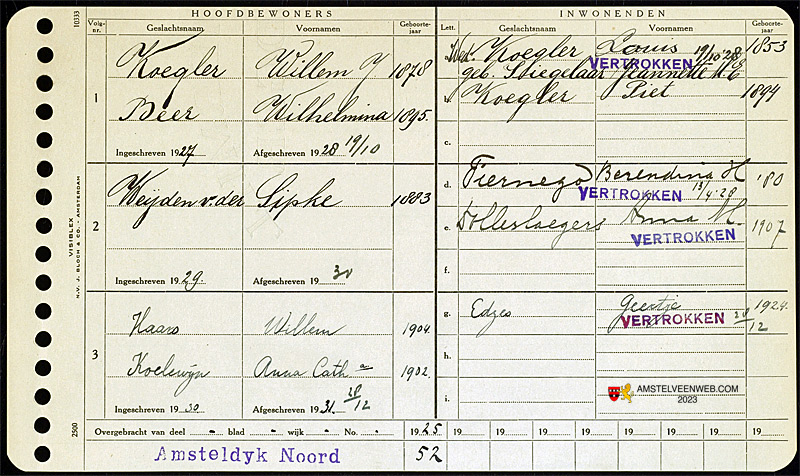 10333
HOOFDBEWONERS INWONENDEN
Volg-nr. Geslachtsnaam Voornamen Geboorte-jaar Lett. Geslachtsnaam Voornamen Geboorte-jaar
1
Koegler Willem J 1878
Beer Wilhelmina 1895.
Ingeschreven 1927 Afgeschreven 1928 19/10
a. Wed. Koegler Louis 19/10'28 1853
VERTROKKEN
geb. Stiegelaar Jeannette
b. Koegler Piet 1894
c.
2
Weijden v. der Sipke 1883
Ingeschreven 1929. Afgeschreven 19 30
d. Fiernego Berendina H '80
VERTROKKEN 13/4-28
e. Dolleslaegers Anna M. 1907
VERTROKKEN
f.
3
Haars Willem 1904.
Koelewijn Anna Cath a 1902.
Ingeschreven 1930 Afgeschreven 31. 28/12
g. Edzes Geertje 1924
VERTROKKEN 28/12
h.
i.
AMSTELVEENWEB.COM
2023
Overgebracht van deel - blad - wijk - No. - 1925 19 19 19 19 19 19 19 19
Amsteldyk Noord 52
VISIBLEX
N.V. J. BLOCH & CO. - AMSTERDAM
2500